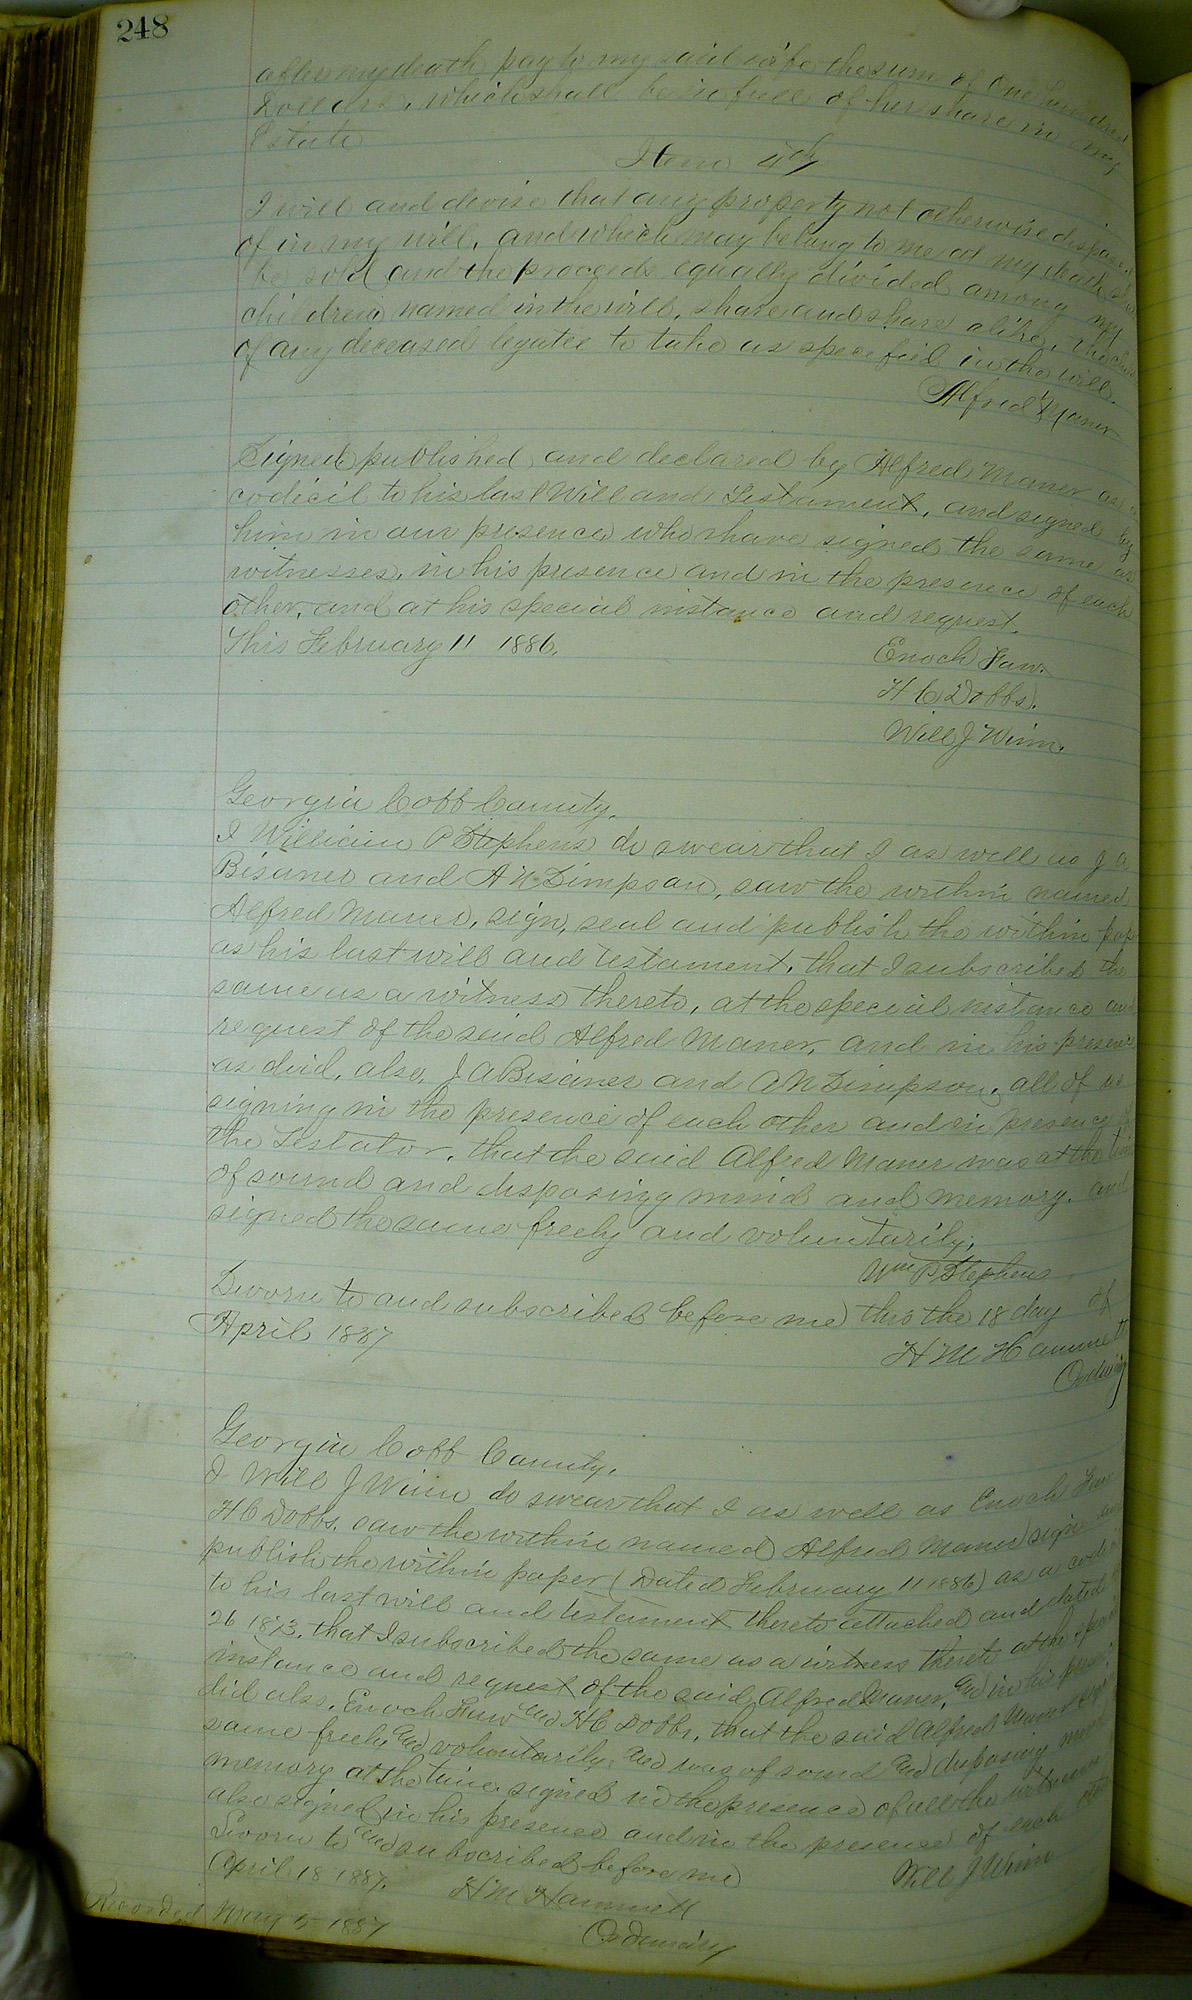 248
after my death pay to my said wife the sum of One hundred
Dollars, which shall be in full of her share in my
Estate
Item 4th
I will and devise that any property not otherwise disposed
of in my will, and which may belong to me at my death
be sold and the proceeds equally divided among my
children named in the will, share and share alike, the
of any deceased legatee to take as specified in the will.
Alfred Maner
Signed published and declared by Alfred Maner as a
codicil to his last Will and Testament, and signed by
him in our presence who have signed the same as
witnesses, in his presence and in the presence of each
other, and at his special instance and request.
This February 11 1886.
Enoch Faw.
H C Dobbs.
Will J Winn.
Georgia Cobb County.
I William P Stephens do swear that I as well as J A
Bisaner and A N Simpson, saw the within named
Alfred Maner, sign, seal and publish the within
as his last will and testament, that I subscribed the
same as a witness thereto, at the special instance and
request of the said Alfred Maner, and in his presence
as did, also, J A Bisaner and A N Simpson, all of us
signing in the presence of each other and in presence of
the Testator, that the said Alfred Maner was at the time
of sound and disposing mind and memory, and
signed the same freely and voluntarily.
Wm P Stephens
Sworn to and subscribed before me this the 18 day of
April 1887
H M Hammett
Ordinary
Georgia Cobb County.
I Will J Winn do swear that I as well as Enoch Faw
H C Dobbs. saw the within named Alfred Maner sign and
publish the within paper (Dated February 11 1886) as a codicil
to his last will and testament thereto attached and dated
26 1873, that I subscribed the same as a witness thereto at the special
instance and request of the said Alfred Maner, and in his presence
did also, Enoch Faw and H C Dobbs, that the said Alfred Maner signed
same freely and voluntarily, and was of sound and disposing mind
memory at the time signed in the presence of all the witnesses
also signed in his presence and in the presence of each other
Sworn to and subscribed before me
Will J Winn
April 18 1887.
H M Hammett
Ordinary
Recorded May 5 1887